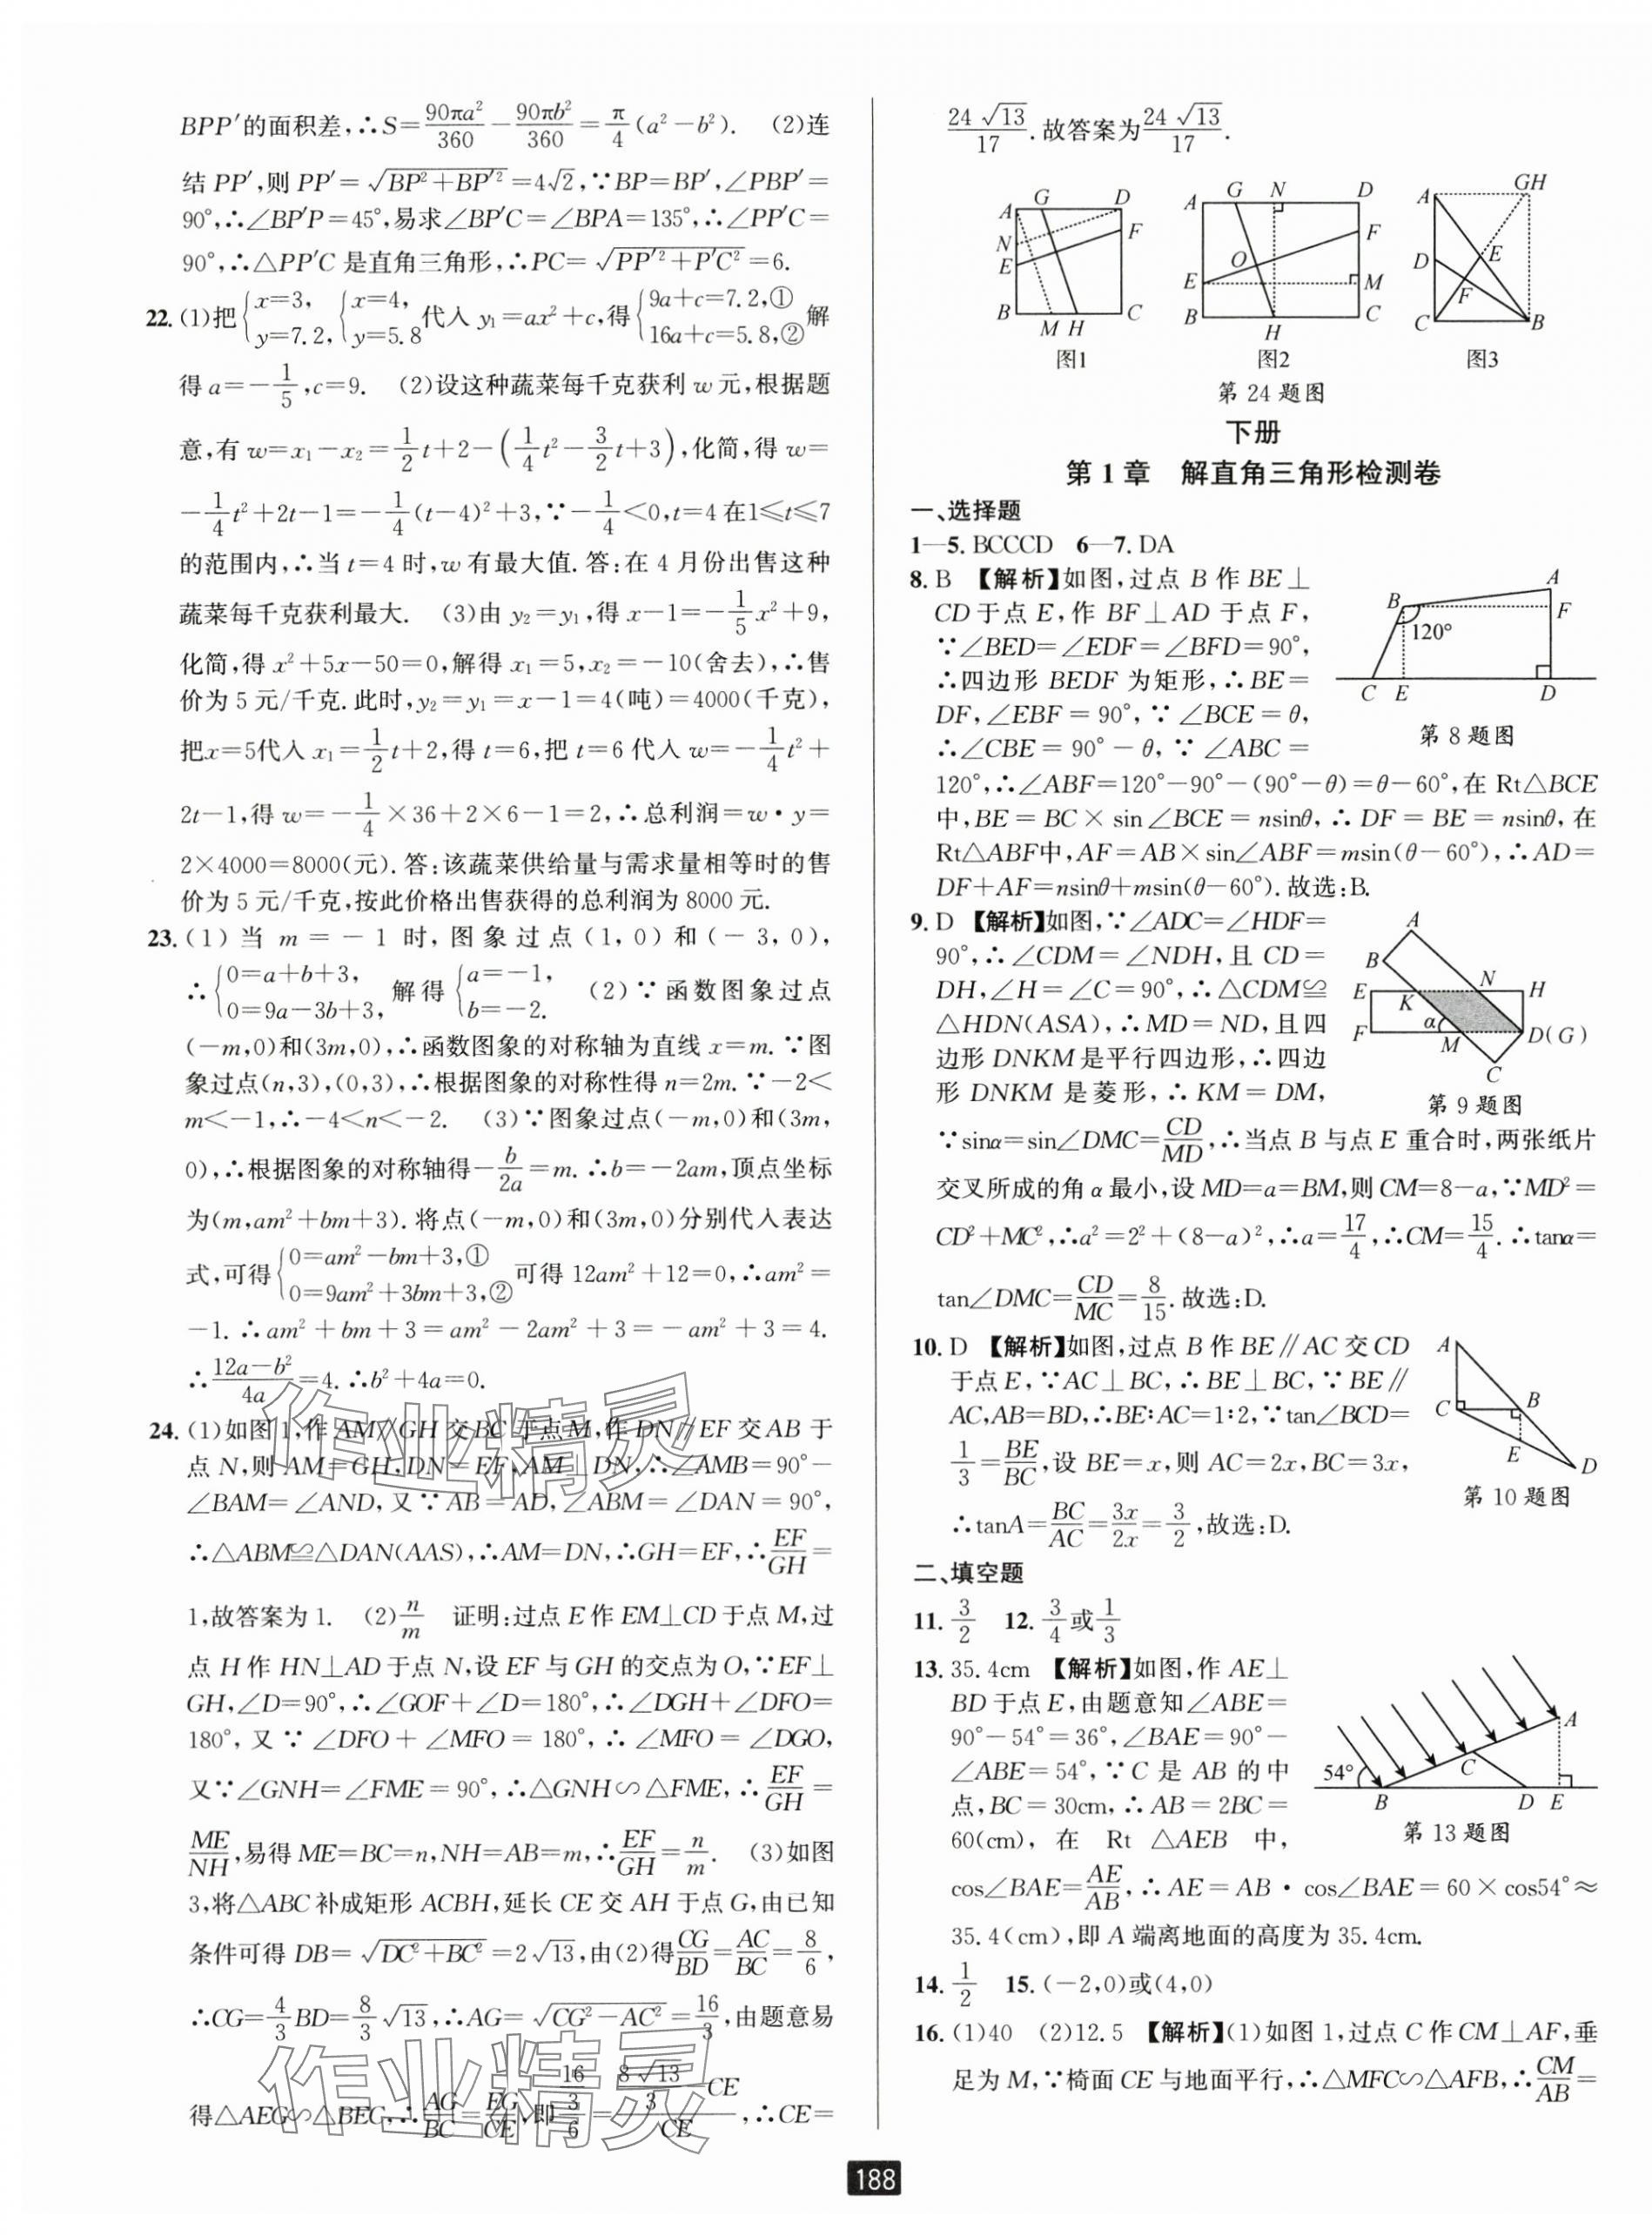 BPP′的面积差,∴S=90πa²/360−90πb²/360=π/4(a²−b²). (2)连
结PP′,则PP′=√(BP²+BP′²)=4√2,∵BP=BP′,∠PBP′=
90°,∴∠BP′P=45°,易求∠BP′C=∠BPA=135°,∴∠PP′C=
90°,∴△PP′C是直角三角形,∴PC=√(PP′²+P′C²)=6.
22.(1)把{x=3, y=7.2,{x=4, y=5.8代入y₁=ax²+c,得{9a+c=7.2,① 16a+c=5.8,②解
得a=−1/5,c=9. (2)设这种蔬菜每千克获利w元,根据题
意,有w=x₁−x₂=1/2t+2−(1/4t²−3/2t+3),化简,得w=
−1/4t²+2t−1=−1/4(t−4)²+3,∵−1/4<0,t=4在1⩽t⩽7
的范围内,∴当t=4时,w有最大值.答:在4月份出售这种
蔬菜每千克获利最大. (3)由y₂=y₁,得x−1=−1/5x²+9,
化简,得x²+5x−50=0,解得x₁=5,x₂=−10(舍去),∴售
价为5元/千克.此时,y₂=y₁=x−1=4(吨)=4000(千克),
把x=5代入x₁=1/2t+2,得t=6,把t=6代入w=−1/4t²+
2t−1,得w=−1/4×36+2×6−1=2,∴总利润=w·y=
2×4000=8000(元).答:该蔬菜供给量与需求量相等时的售
价为5元/千克,按此价格出售获得的总利润为8000元.
23.(1)当m=−1时,图象过点(1,0)和(−3,0),
∴{0=a+b+3, 0=9a−3b+3,解得{a=−1, b=−2. (2)∵函数图象过点
(−m,0)和(3m,0),∴函数图象的对称轴为直线x=m.∵图
象过点(n,3),(0,3),∴根据图象的对称性得n=2m.∵−2<
m<−1,∴−4<n<−2. (3)∵图象过点(−m,0)和(3m,
0),∴根据图象的对称轴得−b/2a=m.∴b=−2am,顶点坐标
为(m,am²+bm+3).将点(−m,0)和(3m,0)分别代入表达
式,可得{0=am²−bm+3,① 0=9am²+3bm+3,②可得12am²+12=0,∴am²=
−1.∴am²+bm+3=am²−2am²+3=−am²+3=4.
∴(12a−b²)/4a=4.∴b²+4a=0.
24.(1)如图1,作AM∥GH交BC于点M,作DN∥EF交AB于
点N,则AM=GH,DN=EF,AM⊥DN,∴∠AMB=90°−
∠BAM=∠AND,又∵AB=AD,∠ABM=∠DAN=90°,
∴△ABM≌△DAN(AAS),∴AM=DN,∴GH=EF,∴EF/GH=
1,故答案为1. (2)n/m 证明:过点E作EM⊥CD于点M,过
点H作HN⊥AD于点N,设EF与GH的交点为O,∵EF⊥
GH,∠D=90°,∴∠GOF+∠D=180°,∴∠DGH+∠DFO=
180°,又∵∠DFO+∠MFO=180°,∴∠MFO=∠DGO,
又∵∠GNH=∠FME=90°,∴△GNH∽△FME,∴EF/GH=
ME/NH,易得ME=BC=n,NH=AB=m,∴EF/GH=n/m. (3)如图
3,将△ABC补成矩形ACBH,延长CE交AH于点G,由已知
条件可得DB=√(DC²+BC²)=2√13,由(2)得CG/BD=AC/BC=8/6,
∴CG=4/3BD=8/3√13,∴AG=√(CG²−AC²)=16/3,由题意易
得△AEG∽△BEC,∴AG/BC=EG/CE,即(16/3)/6=(8√13/3−CE)/CE,∴CE=
24√13/17.故答案为24√13/17.
A G D N E F B M H C
图1
A G N D F O E M B H C
图2
A GH D E F C B
图3
第24题图
下册
第1章 解直角三角形检测卷
一、选择题
1—5.BCCCD 6—7.DA
8.B 【解析】如图,过点B作BE⊥
CD于点E,作BF⊥AD于点F,
∵∠BED=∠EDF=∠BFD=90°,
∴四边形BEDF为矩形,∴BE=
DF,∠EBF=90°,∵∠BCE=θ,
∴∠CBE=90°−θ,∵∠ABC=
120°,∴∠ABF=120°−90°−(90°−θ)=θ−60°,在Rt△BCE
中,BE=BC×sin∠BCE=nsinθ,∴DF=BE=nsinθ,在
Rt△ABF中,AF=AB×sin∠ABF=msin(θ−60°),∴AD=
DF+AF=nsinθ+msin(θ−60°).故选:B.
A B F 120° C E D
第8题图
9.D 【解析】如图,∵∠ADC=∠HDF=
90°,∴∠CDM=∠NDH,且CD=
DH,∠H=∠C=90°,∴△CDM≌
△HDN(ASA),∴MD=ND,且四
边形DNKM是平行四边形,∴四边
形DNKM是菱形,∴KM=DM,
∵sinα=sin∠DMC=CD/MD,∴当点B与点E重合时,两张纸片
交叉所成的角α最小,设MD=a=BM,则CM=8−a,∵MD²=
CD²+MC²,∴a²=2²+(8−a)²,∴a=17/4,∴CM=15/4.∴tanα=
tan∠DMC=CD/MC=8/15.故选:D.
A B N E K H F α M D(G) C
第9题图
10.D 【解析】如图,过点B作BE∥AC交CD
于点E,∵AC⊥BC,∴BE⊥BC,∵BE∥
AC,AB=BD,∴BE∶AC=1∶2,∵tan∠BCD=
1/3=BE/BC,设BE=x,则AC=2x,BC=3x,
∴tanA=BC/AC=3x/2x=3/2,故选:D.
A C B E D
第10题图
二、填空题
11.3/2 12.3/4或1/3
13.35.4cm 【解析】如图,作AE⊥
BD于点E,由题意知∠ABE=
90°−54°=36°,∠BAE=90°−
∠ABE=54°,∵C是AB的中
点,BC=30cm,∴AB=2BC=
60(cm),在Rt△AEB中,
cos∠BAE=AE/AB,∴AE=AB·cos∠BAE=60×cos54°≈
35.4(cm),即A端离地面的高度为35.4cm.
A C 54° B D E
第13题图
14.1/2 15.(−2,0)或(4,0)
16.(1)40 (2)12.5 【解析】(1)如图1,过点C作CM⊥AF,垂
足为M,∵椅面CE与地面平行,∴△MFC∽△AFB,∴CM/AB=
作业精灵
作业精灵
188